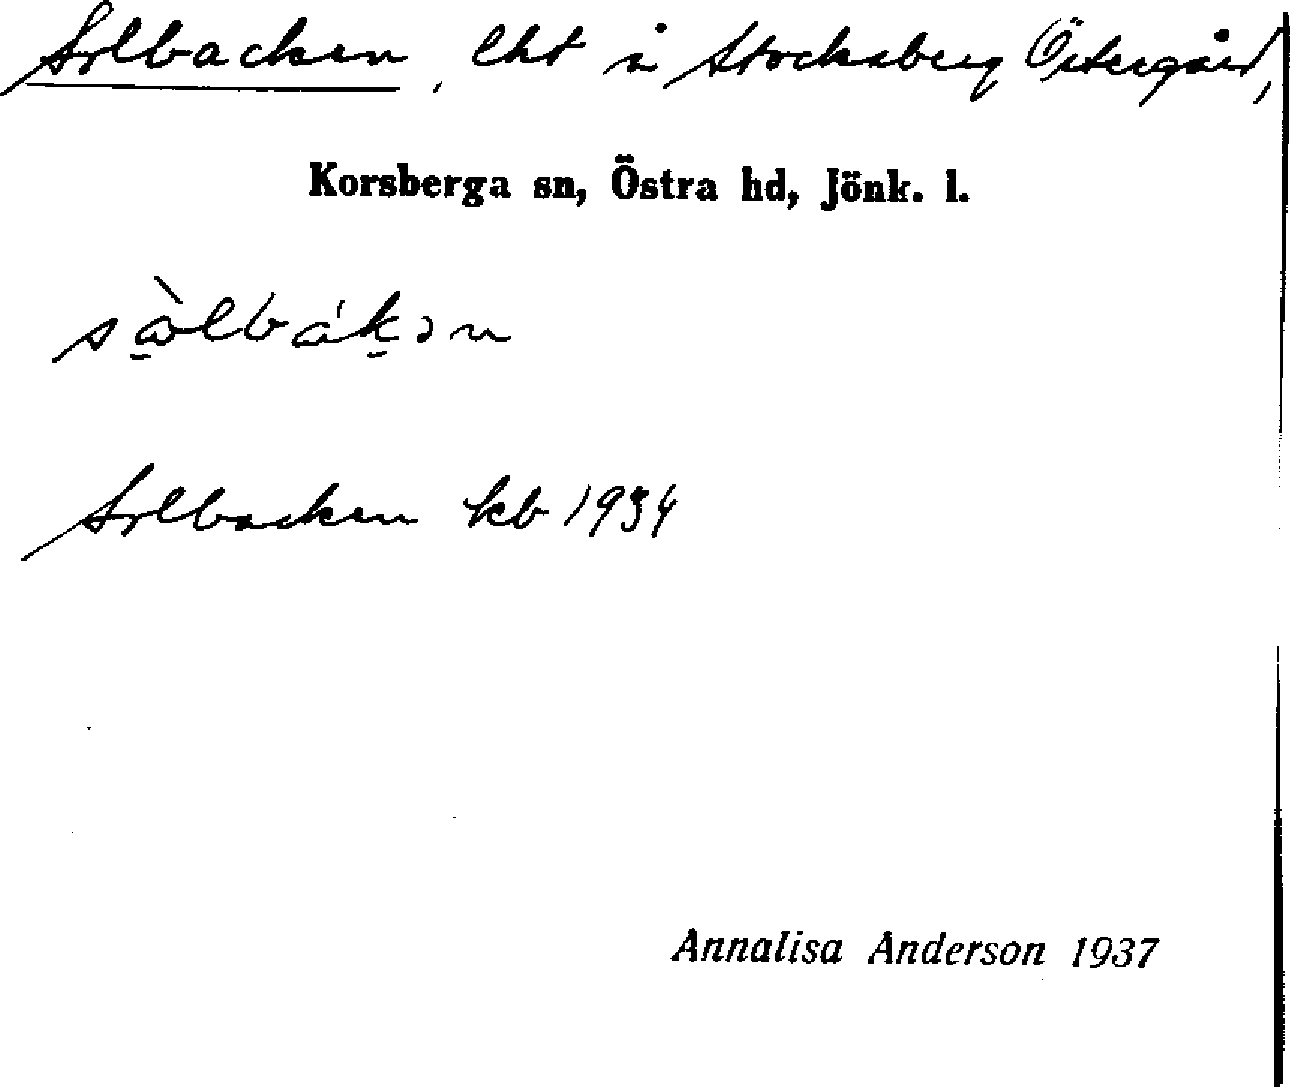 Solbacken, lht å Stocksberg Östergård,
Korsberga sn, Östra hd, Jönk. l.
sὰ̱lbák̠ən
Solbacken kb 1934
Annalisa Anderson 1937